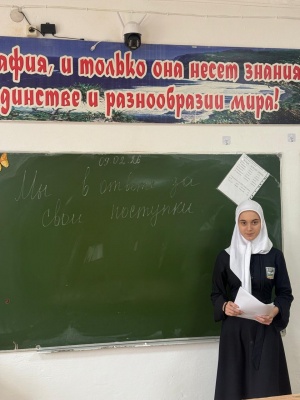 афия, и только она несет знания
динстве и разнообразии мира!
09.02.26
Мы в ответе за
свои поступки